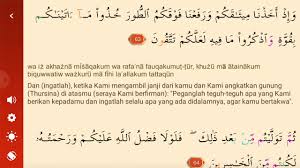 وَإِذْ أَخَذْنَا مِيثَٰقَكُمْ وَرَفَعْنَا فَوْقَكُمُ ٱلطُّورَ خُذُوا۟ مَآ ءَاتَيْنَٰكُم
بِقُوَّةٍ وَٱذْكُرُوا۟ مَا فِيهِ لَعَلَّكُمْ تَتَّقُونَ 63
wa iż akhażnā mīṡāqakum wa rafa'nā fauqakumuṭ-ṭụr, khużụ mā ātainākum
biquwwatiw ważkurụ mā fīhi la'allakum tattaqụn
Dan (ingatlah), ketika Kami mengambil janji dari kamu dan Kami angkatkan gunung
(Thursina) di atasmu (seraya Kami berfirman): "Peganglah teguh-teguh apa yang Kami
berikan kepadamu dan ingatlah selalu apa yang ada didalamnya, agar kamu bertakwa".
63
ثُمَّ تَوَلَّيْتُم مِّنۢ بَعْدِ ذَٰلِكَ ۖ فَلَوْلَا فَضْلُ ٱللَّهِ عَلَيْكُمْ وَرَحْمَتُهُۥ